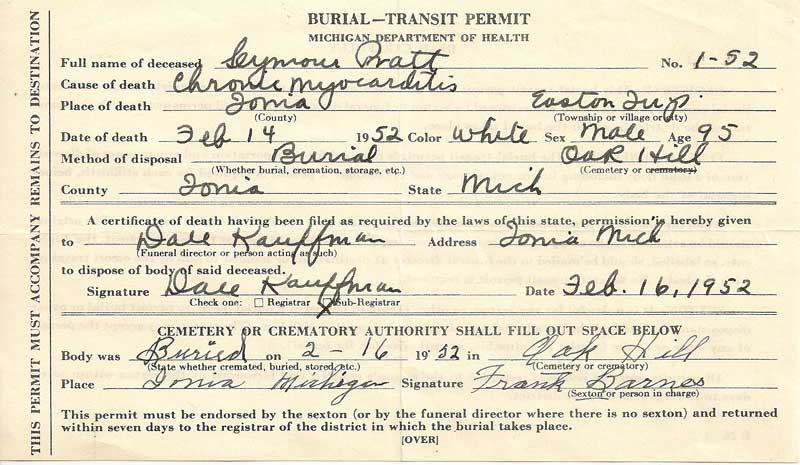 BURIAL—TRANSIT PERMIT
MICHIGAN DEPARTMENT OF HEALTH
Full name of deceased Seymour Pratt No. 1-52
Cause of death Chronic Myocarditis
Place of death Ionia Easton Twp.
(County) (Township or village or city)
Date of death Feb 14 1952 Color White Sex Male Age 95
Method of disposal Burial Oak Hill
(Whether burial, cremation, storage, etc.) (Cemetery or crematory)
County Ionia State Mich
A certificate of death having been filed as required by the laws of this state, permission is hereby given
to Dale Kauffman Address Ionia Mich
(Funeral director or person acting as such)
to dispose of body of said deceased.
Signature Dale Kauffman Date Feb. 16, 1952
Check one: ☐ Registrar ☒ Sub-Registrar
CEMETERY OR CREMATORY AUTHORITY SHALL FILL OUT SPACE BELOW
Body was Buried on 2-16 1952 in Oak Hill
(State whether cremated, buried, stored, etc.) (Cemetery or crematory)
Place Ionia Michigan Signature Frank Barnes
(Sexton or person in charge)
This permit must be endorsed by the sexton (or by the funeral director where there is no sexton) and returned
within seven days to the registrar of the district in which the burial takes place.
[OVER]
THIS PERMIT MUST ACCOMPANY REMAINS TO DESTINATION